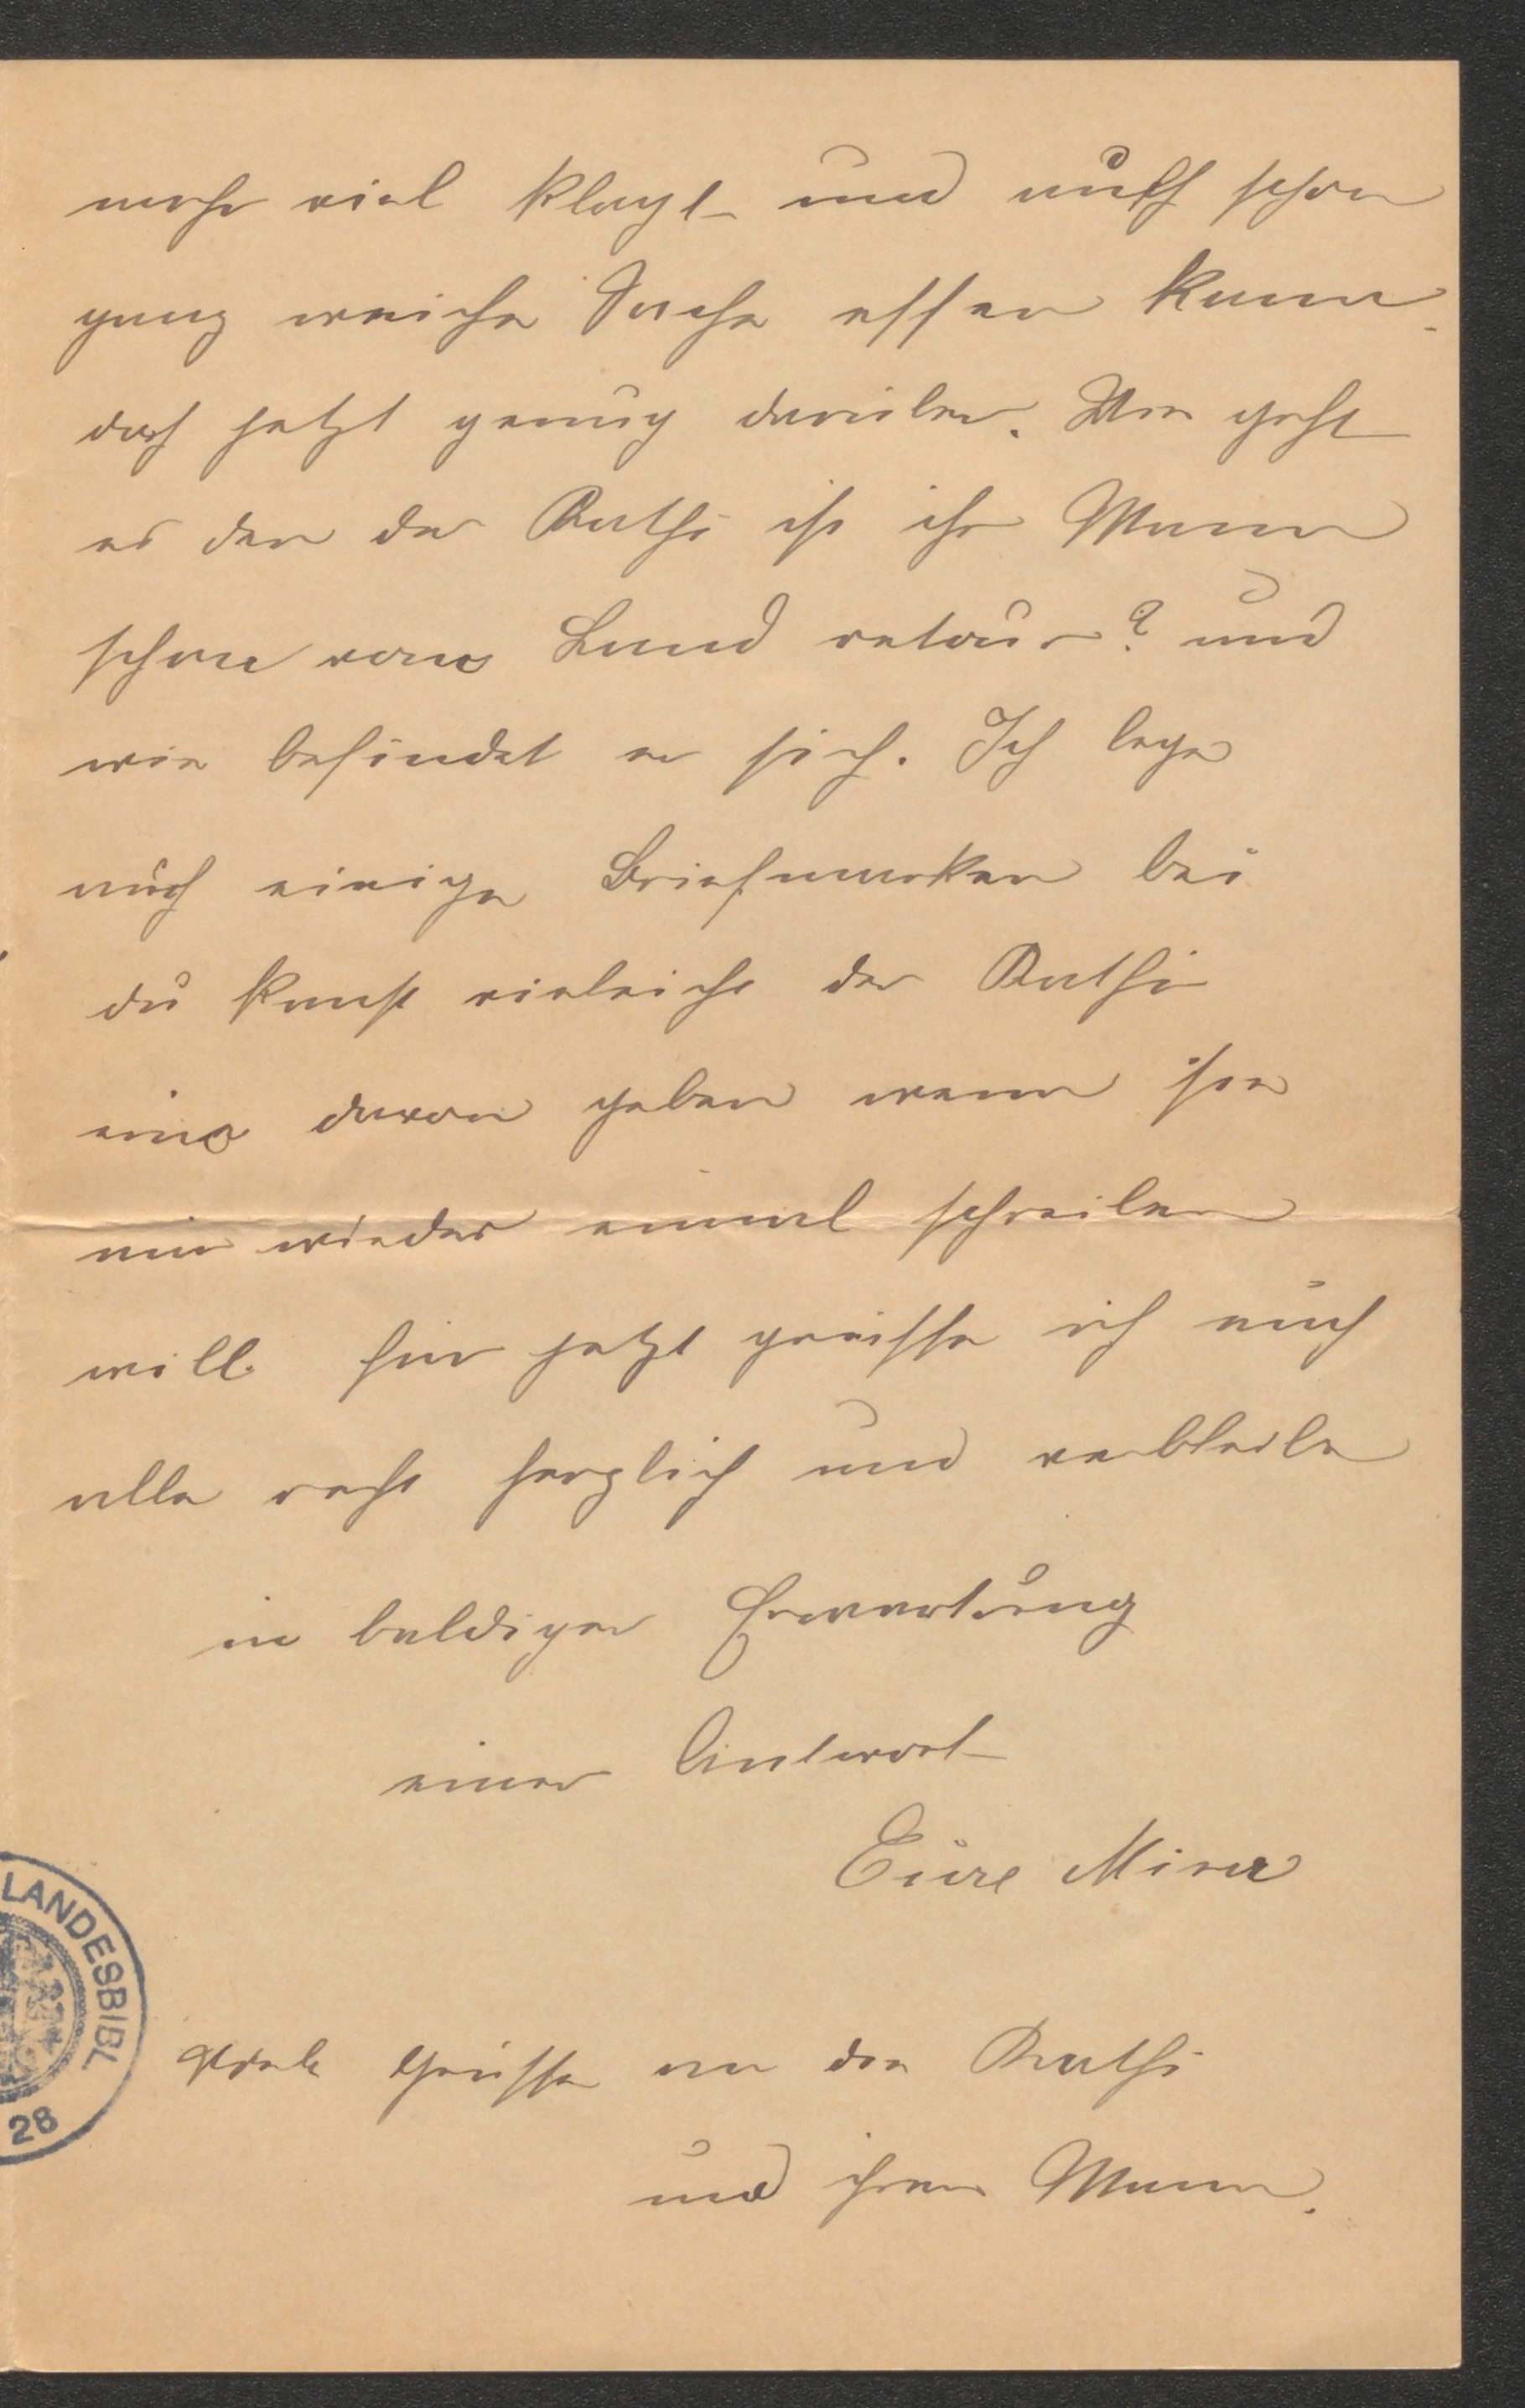 mehr viel klagt und auch schon
ganz weiche Sache essen kann.
doch jetzt genug darüber. Wie geht
es den der Rathi ist ihr Mann
schon vom Land retour? und
wie befindet er sich. Ich lege
auch einige Briefmarken bei
du kanst vieleicht der Rathi
eine davon geben wenn sie
mir wieder einmal schreiben
will. für jetzt grüsse ich euch
alle recht herzlich und verbleibe
in baldiger Erwartung
einer Antwort
Eure Mina
Viele Grüsse an die Rathi
und ihren Mann.
LANDESBIBL
28